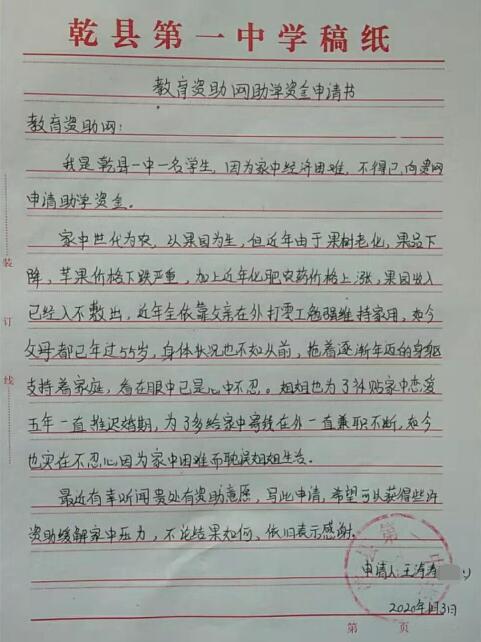 乾县第一中学稿纸
教育资助网助学资金申请书
教育资助网：
我是乾县一中一名学生，因为家中经济困难，不得已，向贵网
申请助学资金。
家中世代为农，以果园为生，但近年由于果树老化，果品下
降，苹果价格下跌严重，加上近年化肥农药价格上涨，果园收入
已经入不敷出，近年全依靠父亲在外打零工勉强维持家用，如今
父母都已年过55岁，身体状况也不如从前，拖着逐渐年迈的身躯
支持着家庭，看在眼中已是心中不忍。姐姐也为了补贴家中恋爱
五年一直推迟婚期，为了多给家中寄钱在外一直兼职不断，如今
也实在不忍心因为家中困难而耽误姐姐生活。
最近有幸听闻贵处有资助意愿，写此申请，希望可以获得些许
资助缓解家中压力，不论结果如何，依旧表示感谢。
申请人：王涛
2020年 月3日
装
订
线
第 页